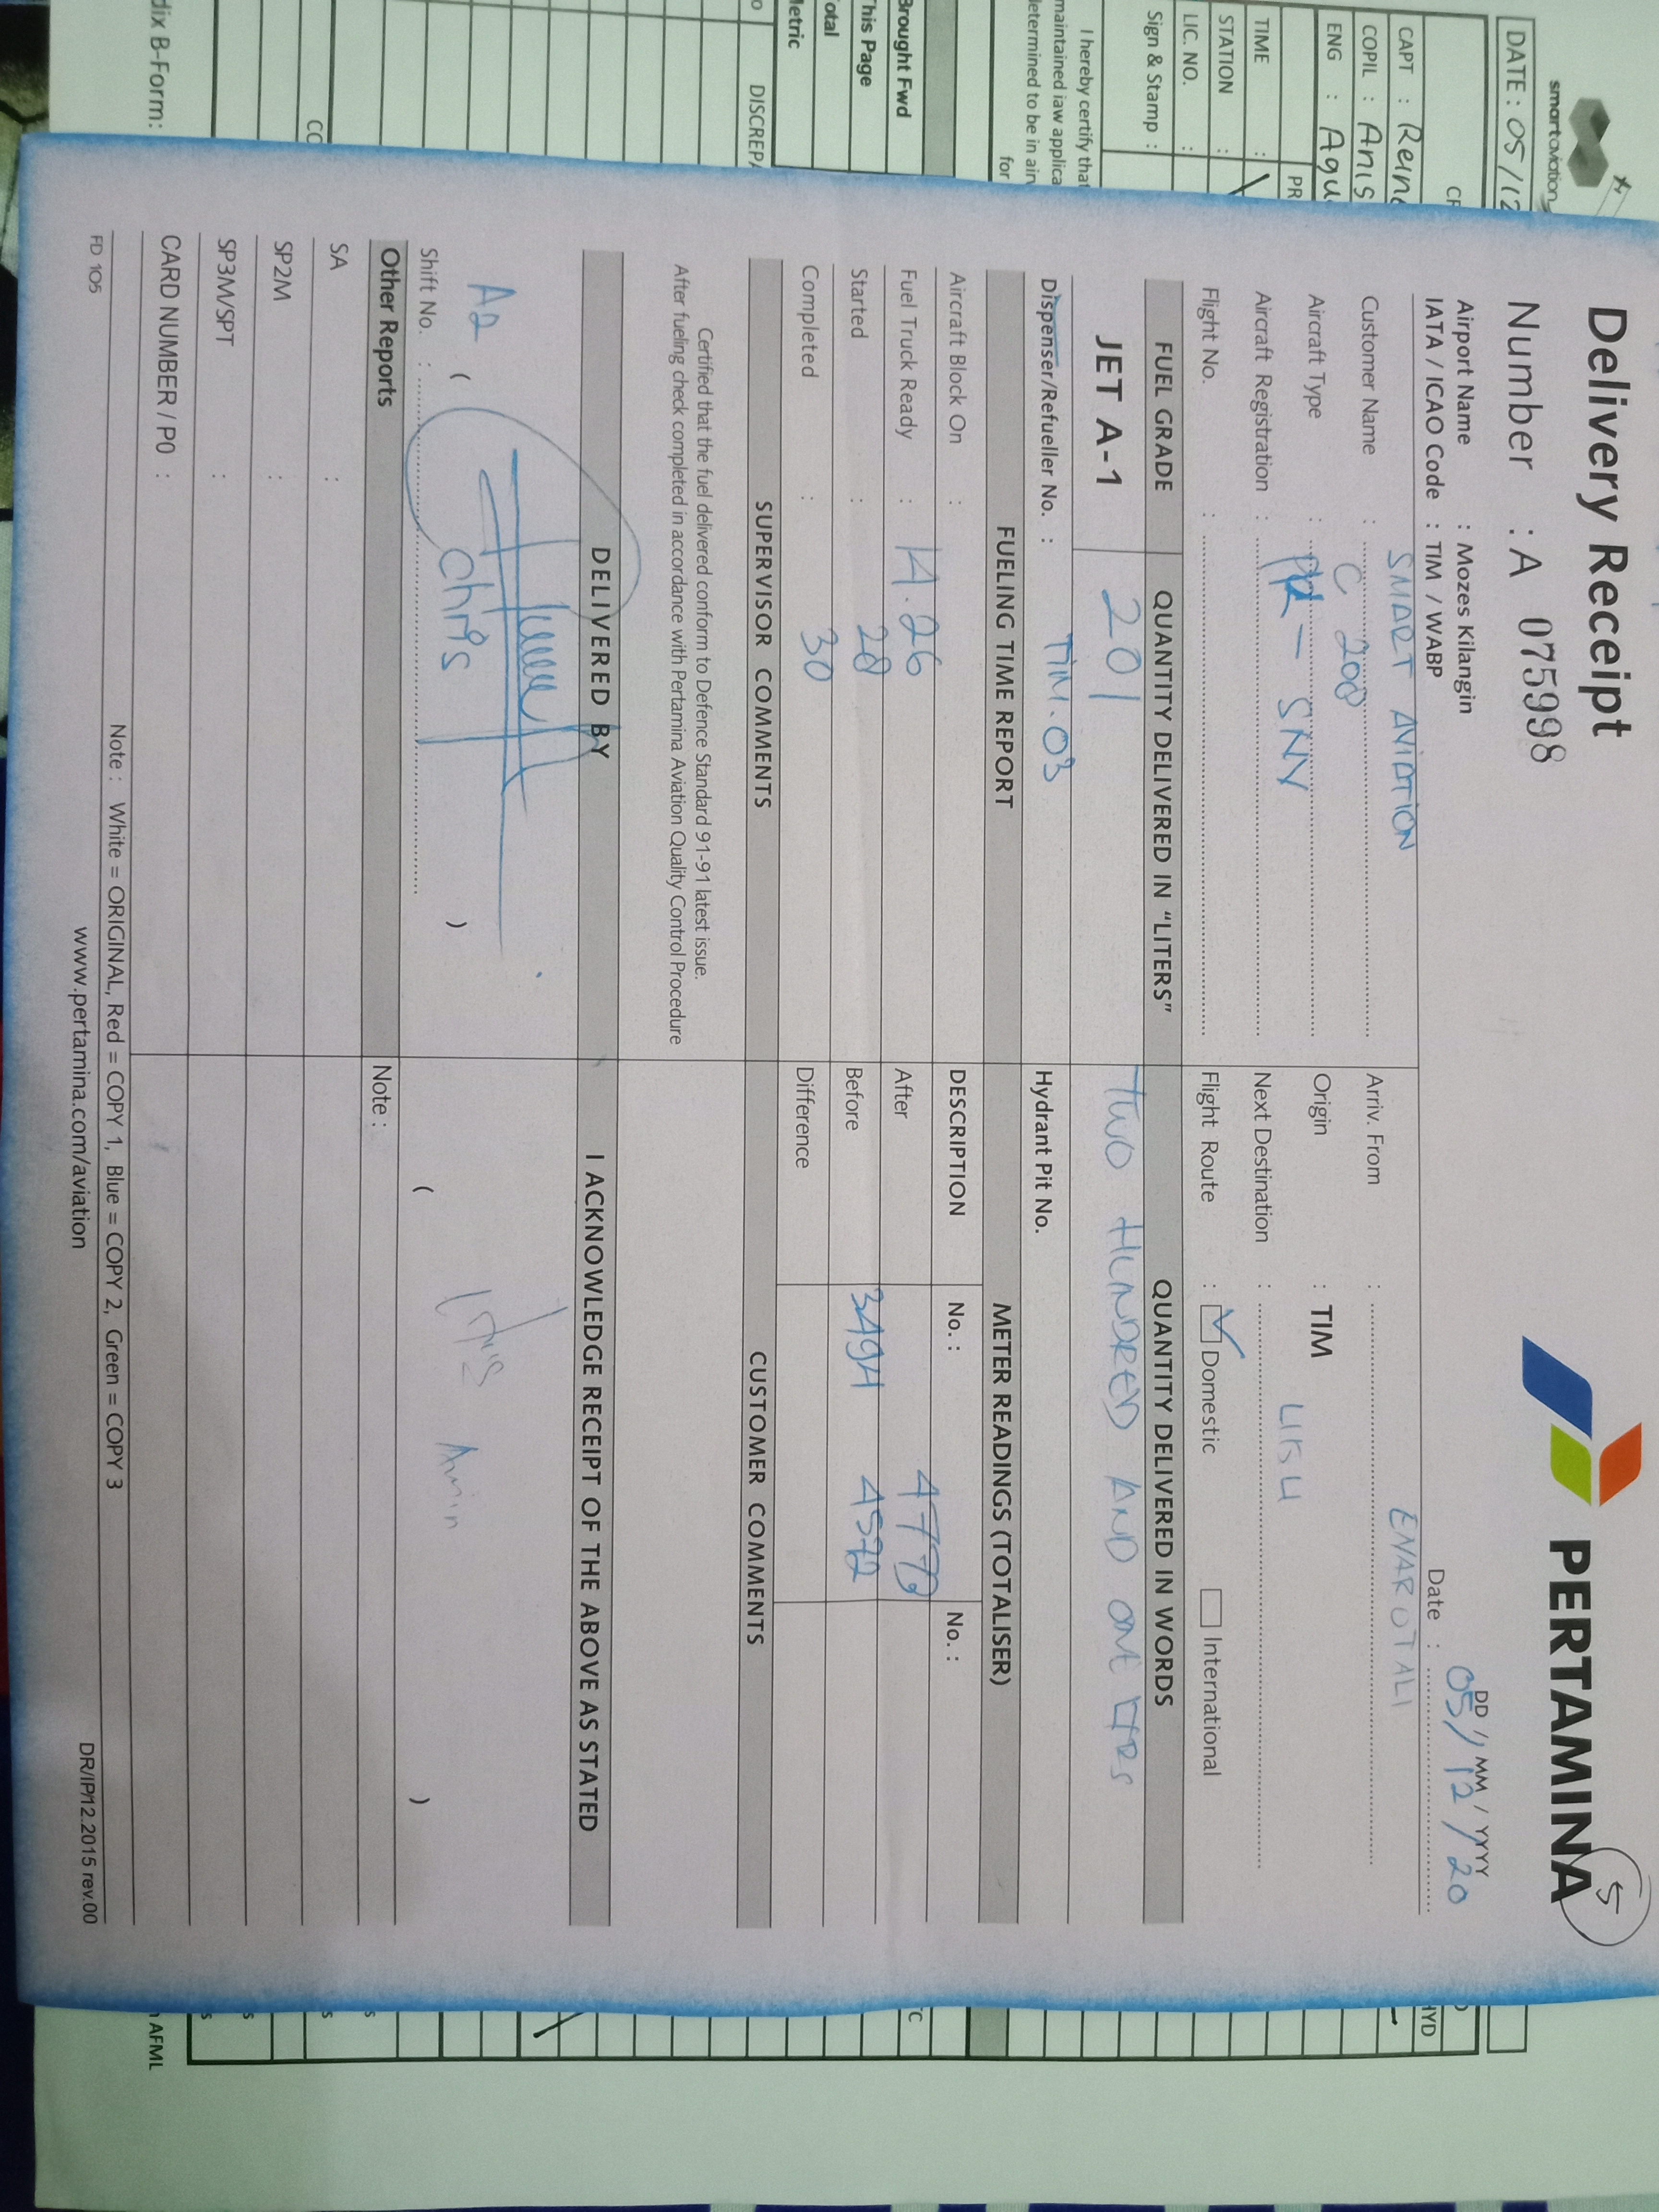 smartaviation
DATE : 05/12
CAPT :
COPIL : Anis
ENG : Agu
PR
TIME :
STATION :
LIC. NO. :
Sign & Stamp :
I hereby certify that
maintained iaw applica
determined to be in air
for
Brought Fwd
This Page
Total
Metric
DISCREPA
dix B-Form:
Delivery Receipt
PERTAMINA
5
Number : A 075998
DD / MM / YYYY
Airport Name : Mozes Kilangin
Date : 05/12/20
IATA / ICAO Code : TIM / WABP
Customer Name : SMART AVIATION
Arriv. From : ENAROTALI
Aircraft Type : C 208
Origin : TIM
Aircraft Registration : PK - SNV
Next Destination :
Flight No. :
Flight Route : Domestic International
FUEL GRADE
QUANTITY DELIVERED IN "LITERS"
QUANTITY DELIVERED IN WORDS
JET A-1
201
TWO HUNDRED AND ONE LTRS
Dispenser/Refueller No. : TIM.03
Hydrant Pit No.
FUELING TIME REPORT
METER READINGS (TOTALISER)
Aircraft Block On :
DESCRIPTION No. : No. :
Fuel Truck Ready : 14.26
After 4773
Started : 28
Before 3494 4572
Completed : 30
Difference
SUPERVISOR COMMENTS
CUSTOMER COMMENTS
Certified that the fuel delivered conform to Defence Standard 91-91 latest issue.
After fueling check completed in accordance with Pertamina Aviation Quality Control Procedure
DELIVERED BY
I ACKNOWLEDGE RECEIPT OF THE ABOVE AS STATED
A2 ( Chris )
( Amin )
Shift No. :
Other Reports
Note :
SA :
SP2M :
SP3M/SPT :
CARD NUMBER / PO :
Note : White = ORIGINAL, Red = COPY 1, Blue = COPY 2, Green = COPY 3
FD 105
www.pertamina.com/aviation
DR/IP/12.2015 rev.00
HYD
AFML